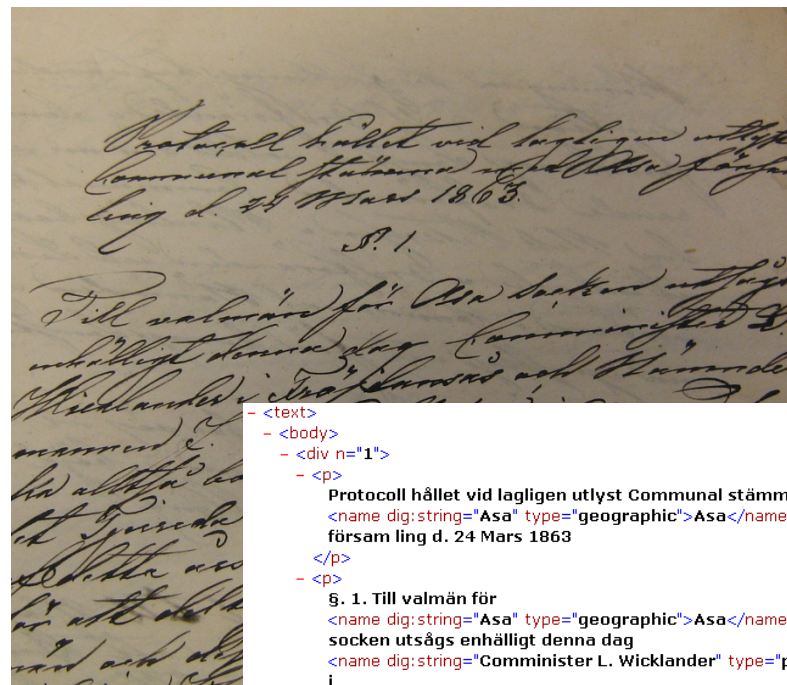 Protocoll hållet vid lagligen utlyst
Communal stämma med Asa försam
ling d. 24 Mars 1863.
§. 1.
Till valmän för Asa socken utsågs
enhälligt denna dag Comminister L.
Wicklander i Tröjdansås och Nämnde
mannen
alltså
detta
för att
män och
- <text>
- <body>
- <div n="1">
- <p>
Protocoll hållet vid lagligen utlyst Communal stämm
<name dig:string="Asa" type="geographic">Asa</name
försam ling d. 24 Mars 1863
</p>
- <p>
§. 1. Till valmän för
<name dig:string="Asa" type="geographic">Asa</name
socken utsågs enhälligt denna dag
<name dig:string="Comminister L. Wicklander" type="p
i